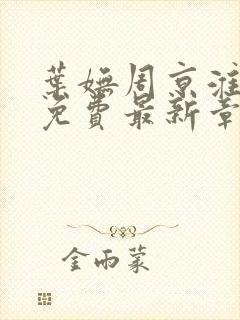 葉嫵周京淮
免費最新章
金雨蒙